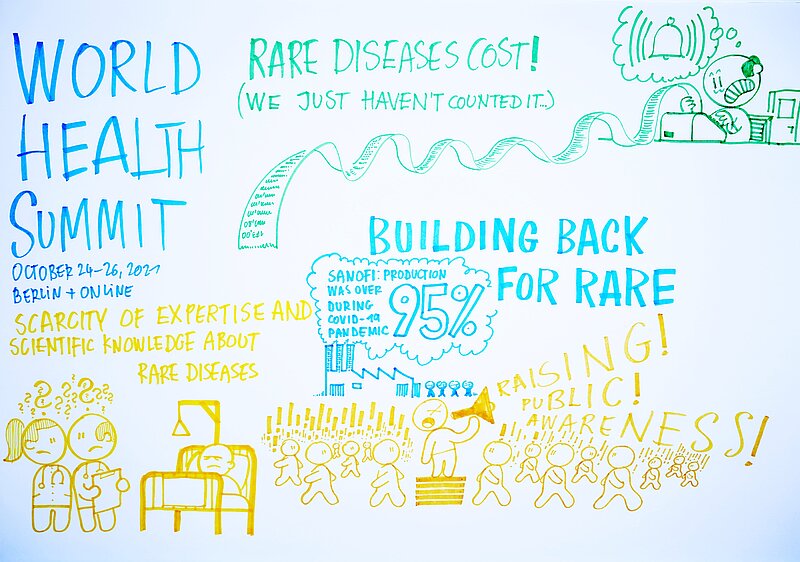 WORLD
HEALTH
SUMMIT
OCTOBER 24-26, 2021
BERLIN + ONLINE
RARE DISEASES COST!
(WE JUST HAVEN'T COUNTED IT...)
BUILDING BACK
FOR RARE
SANOFI: PRODUCTION
WAS OVER
DURING
COVID-19
PANDEMIC
95%
SCARCITY OF EXPERTISE AND
SCIENTIFIC KNOWLEDGE ABOUT
RARE DISEASES
RAISING!
PUBLIC!
AWARENESS!